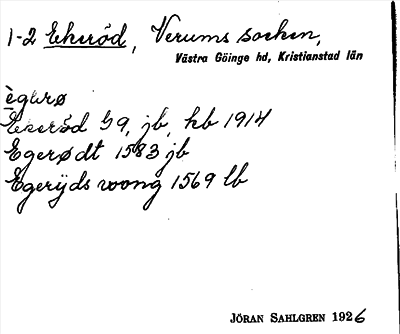 1-2 Ekeröd, Verums socken,
Västra Göinge hd, Kristianstad län
Ekeröd 59, jb, kb 1914
Egerødt 1583 jb
Egerijds woong 1569 lb
JÖRAN SAHLGREN 1926